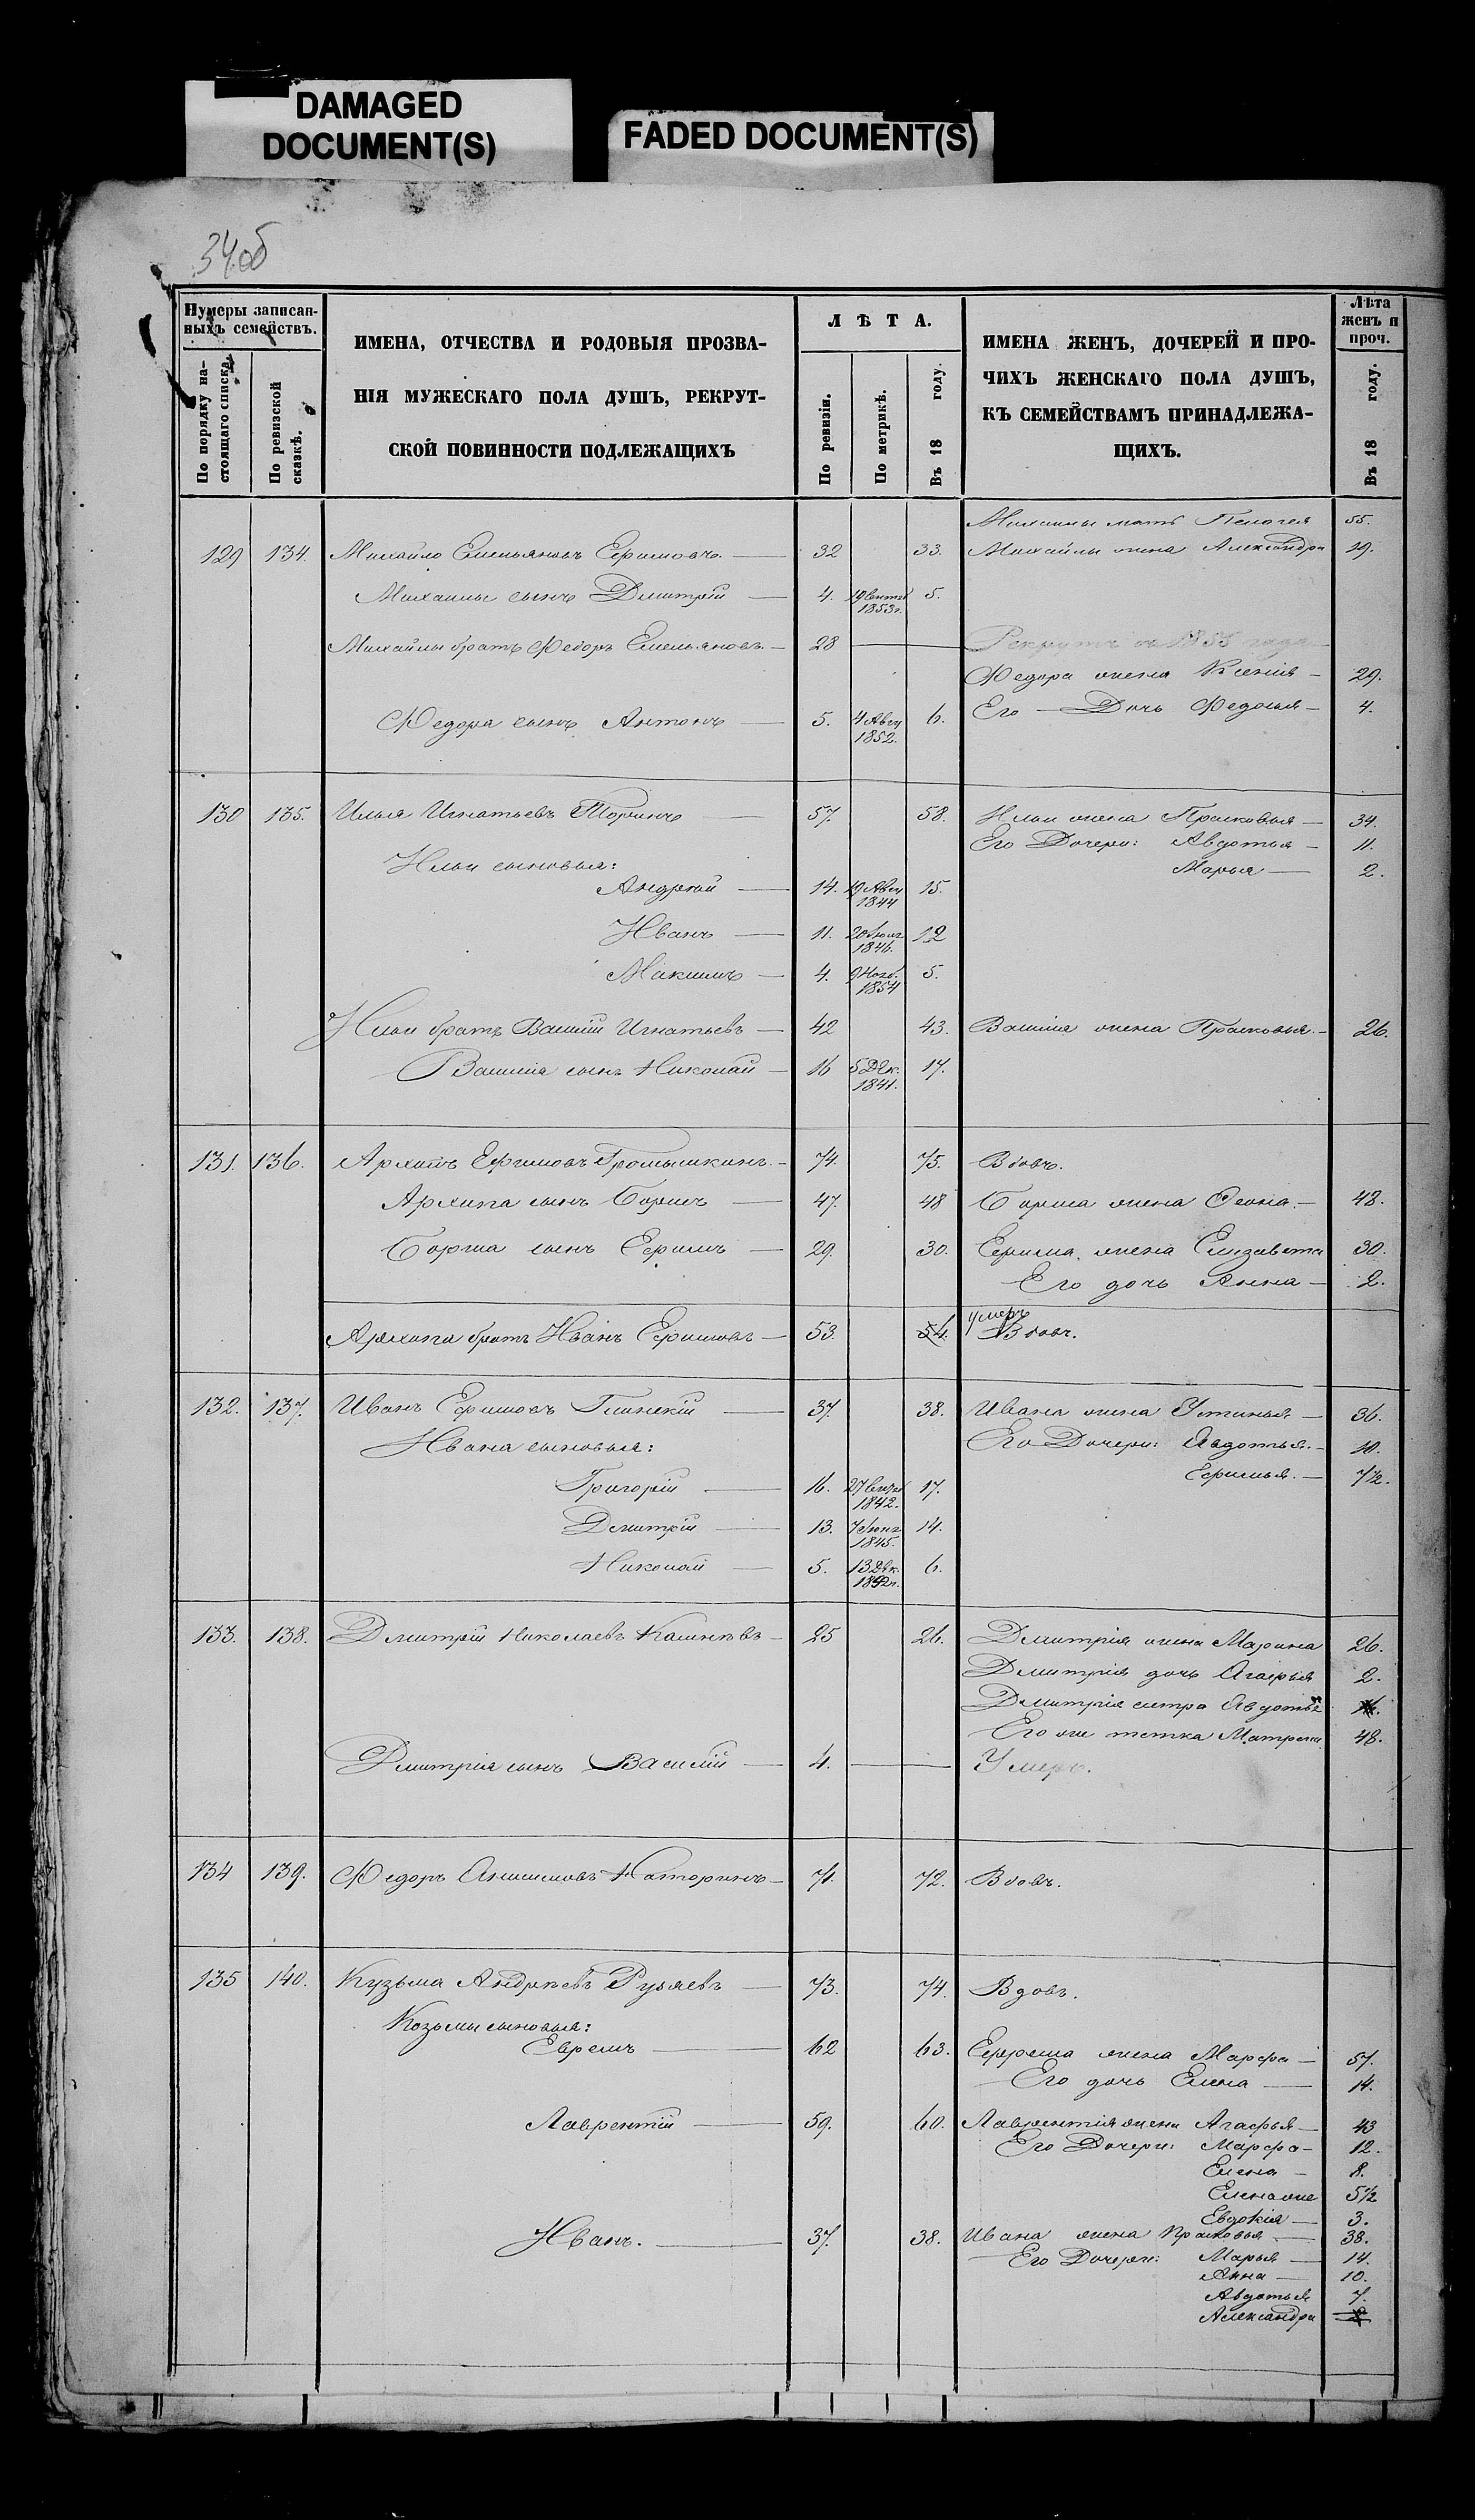 DAMAGED
DOCUMENT(S)
FADED DOCUMENT(S)
34об
Нумеры записан-
ныхъ семействъ.
По порядку на-
стоящаго списка.
По ревизской
сказкѣ.
ИМЕНА, ОТЧЕСТВА И РОДОВЫЯ ПРОЗВА-
НІЯ МУЖЕСКАГО ПОЛА ДУШЪ, РЕКРУТ-
СКОЙ ПОВИННОСТИ ПОДЛЕЖАЩИХЪ
ЛѢТА.
По ревизіи.
По метрикѣ.
Въ 18 году.
ИМЕНА ЖЕНЪ, ДОЧЕРЕЙ И ПРО-
ЧИХЪ ЖЕНСКАГО ПОЛА ДУШЪ,
КЪ СЕМЕЙСТВАМЪ ПРИНАДЛЕЖА-
ЩИХЪ.
Лѣта
женъ и
проч.
Въ 18 году.
Михаилы мать Пелагея 55.
129 134. Михайло Емельяновъ Ефимовъ 32 33. Михайлы жена Александра 29.
Михаилы сынъ Дмитрій 4. 19 Сентя 1853г. 5.
Михайлы братъ Федоръ Емельяновъ 28 Рекрутъ съ 1855 года
Федора жена Ксенія 29.
Федора сынъ Антонъ 5. 4 Авгу 1852. 6. Его Дочь Федосья 4.
130 135. Илья Игнатьевъ Торинъ 57. 58. Ильи жена Прасковья 34.
Его Дочери: Авдотья 11.
Ильи сыновья: Марья 2.
Андрей 14. 19 Авгу 1844 15.
Иванъ 11. 20 Іюля 1846. 12
Максимъ 4. 9 Нояб. 1854 5.
Ильи братъ Василій Игнатьевъ 42 43. Василія жена Прасковья 26.
Василія сынъ Николай 16 5 Дек. 1841. 17.
131. 136. Архипъ Ефимовъ Громышкинъ 74. 75. Вдовъ.
Архипа сынъ Борисъ 47. 48 Бориса жена Фекла 48.
Бориса сынъ Ефимъ 29. 30. Ефима жена Елизавета 30.
Его дочь Анна 2.
умеръ
Архипа братъ Иванъ Ефимовъ 53. 54. Вдовъ.
132. 137. Иванъ Ефимовъ Глинскій 37. 38. Ивана жена Устинья 36.
Ивана сыновья: Его Дочери: Авдотья 10.
Ефимья 7½.
Григорій 16. 27 Сентя 1842. 17.
Дмитрій 13. 7 Іюня 1845. 14.
Николай 5. 13 Дек. 1852г. 6.
133. 138. Дмитрій Николаевъ Калинкъвъ 25 26. Дмитрія жена Марина 26.
Дмитрія дочь Агафья 2.
Дмитрія сестра Авдотья
Его же тетка Матрена 48.
Дмитрія сынъ Василій 4. Умеръ.
134 139. Федоръ Анисимовъ Наторинъ 71. 72. Вдовъ.
135 140. Кузьма Андреевъ Рузяевъ 73. 74. Вдовъ.
Козьмы сыновья:
Ефремъ 62 63. Ефрема жена Марфа 57.
Его дочь Елена 14.
Лаврентій 59. 60. Лаврентія жена Агафья 43
Его Дочери: Марфа 12.
Елена 8.
Елена же 5½
Евдокія 3.
Иванъ. 37. 38. Ивана жена Прасковья 38.
Его Дочери: Марья 14.
Анна 10.
Авдотья 7.
Александра